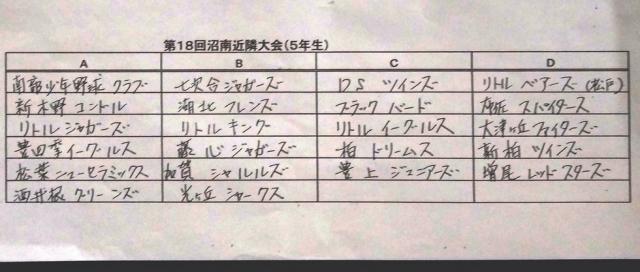 第18回沼南近隣大会(5年生)
A B C D
南部少年野球クラブ 七次台ジャガーズ DSツインズ リトルベアーズ(松戸)
新木野コンドル 湖北フレンズ ブラックバード スパイダース
リトルジャガーズ リトルキング リトルイーグルス 大津ヶ丘ファイターズ
豊四季イーグルス 藤心ジャガーズ 柏ドリームス 新柏ツインズ
松葉ニューセラミックス 加賀シャルルズ 豊上ジュニアーズ 増尾レッドスターズ
酒井根グリーンズ 光ヶ丘シャークス